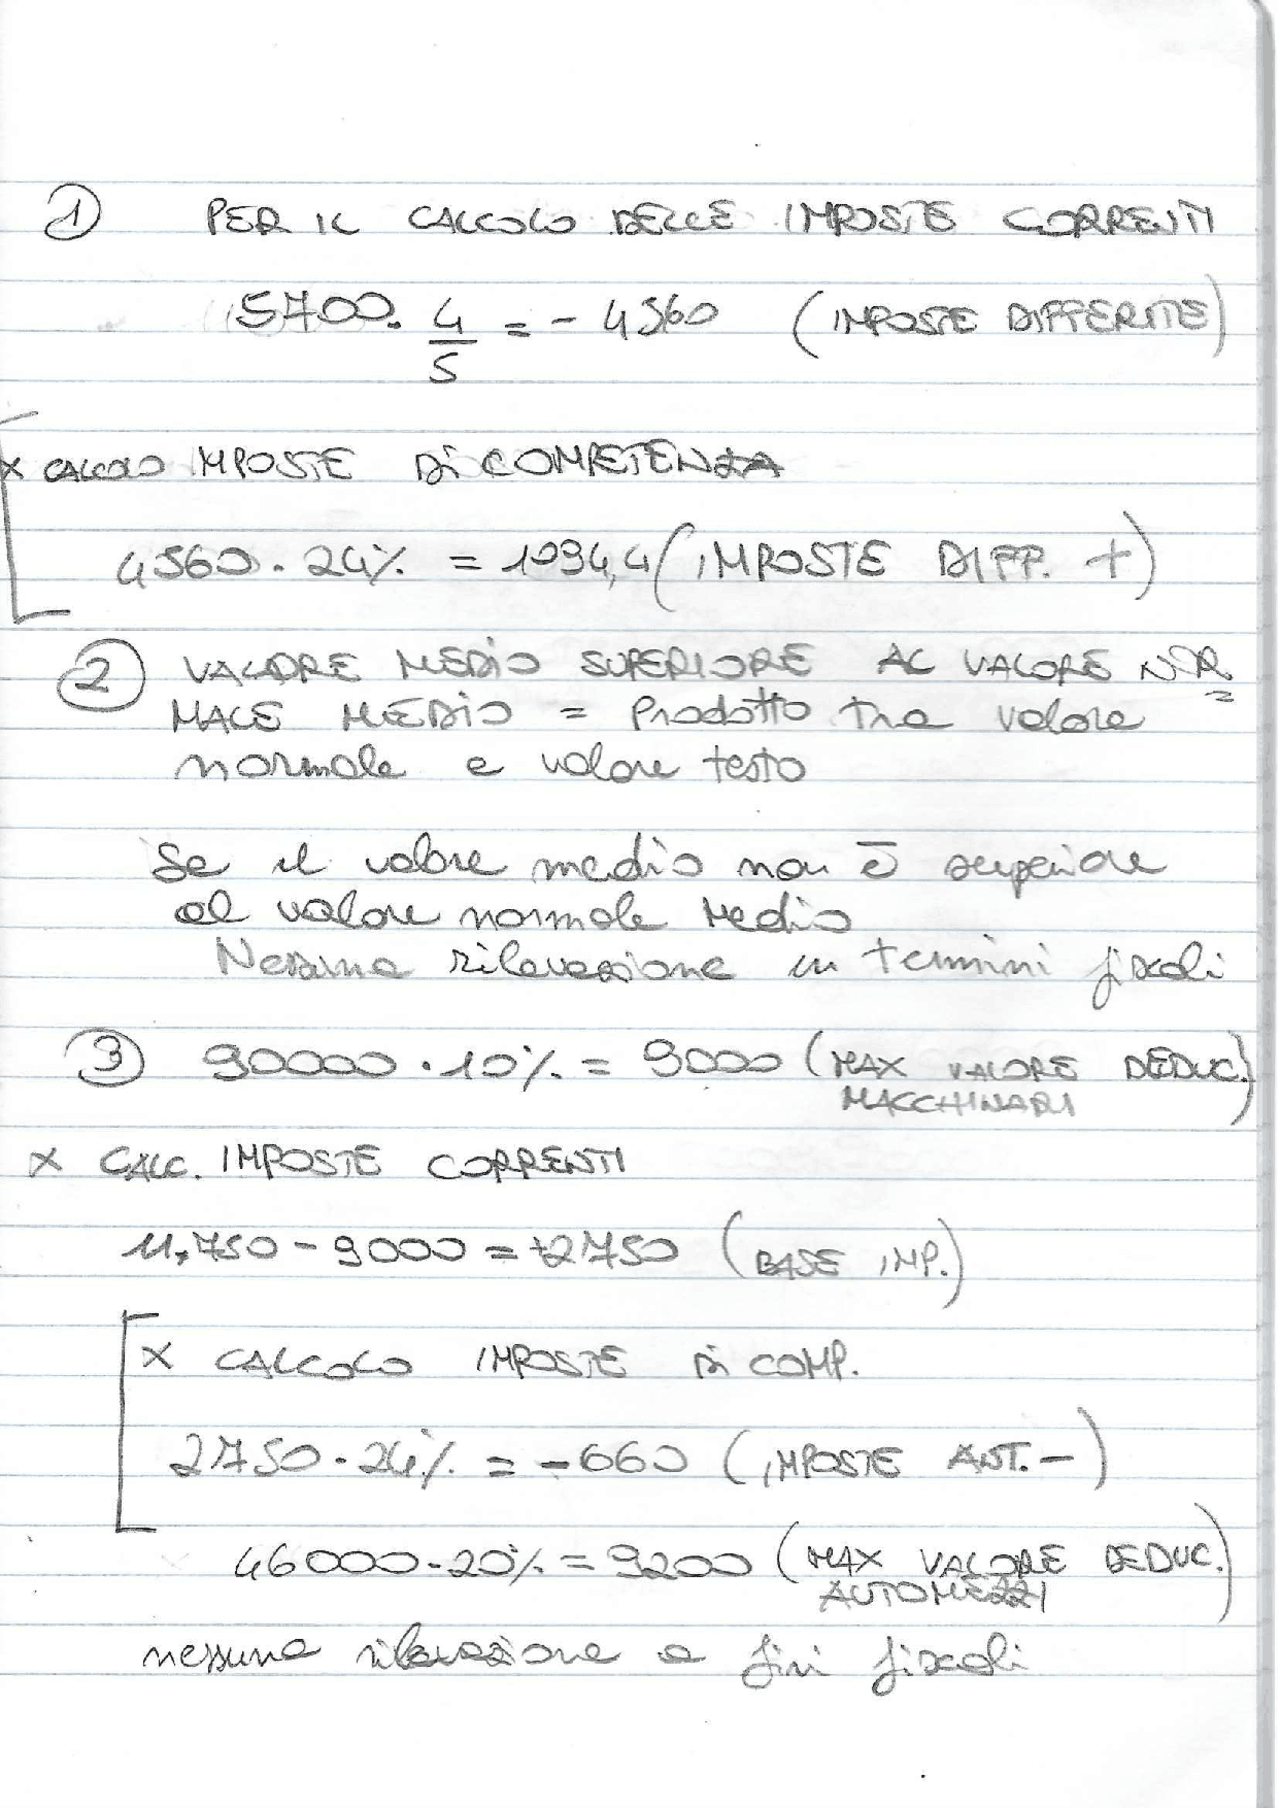 1 PER IL CALCOLO DELLE IMPOSTE CORRENTI
5700 · 4/5 = - 4560 (IMPOSTE DIFFERITE)
X CALCOLO IMPOSTE DI COMPETENZA
4560 · 24% = 1094,4 (IMPOSTE DIFF. +)
2 VALORE MEDIO SUPERIORE AL VALORE NOR=
MALE MEDIO = Prodotto tra valore
normale e valore testo
Se il valore medio non è superiore
al valore normale Medio
Nessuna rilevazione in termini fiscali
3 90000 · 10% = 9000 (MAX VALORE DEDUC.
MACCHINARI)
X CALC. IMPOSTE CORRENTI
11.750 - 9000 = +2750 (BASE IMP.)
X CALCOLO IMPOSTE DI COMP.
2750 · 24% = -660 (IMPOSTE ANT. -)
46000 · 20% = 9200 (MAX VALORE DEDUC.
AUTOMEZZI)
nessuna rilevazione a fini fiscali